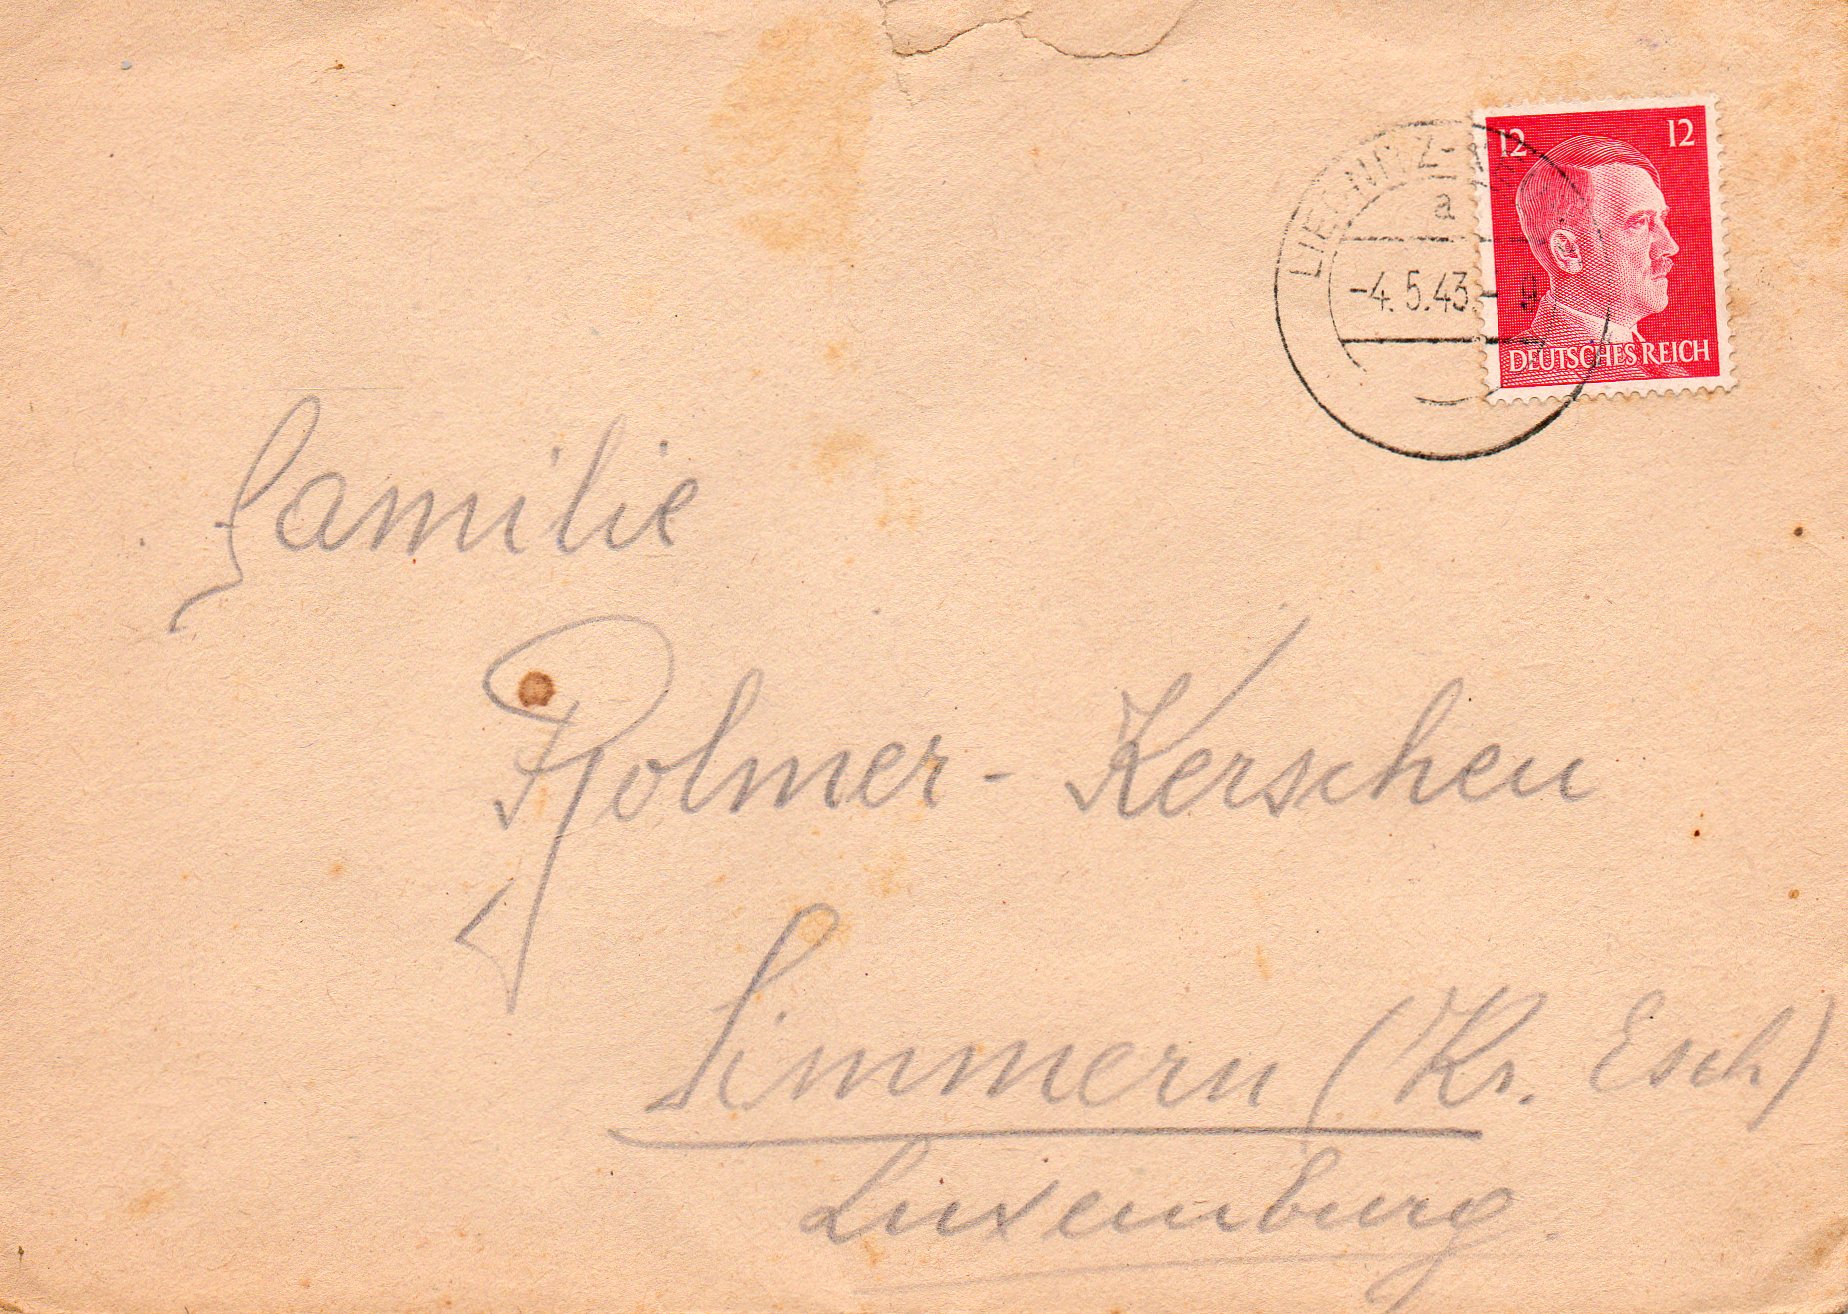 LIEGNITZ
a
12 12
-4.5.43.- 9
DEUTSCHES REICH
Familie
Rolmer - Kerschen
Simmern (Kr. Esch)
Luxemburg.